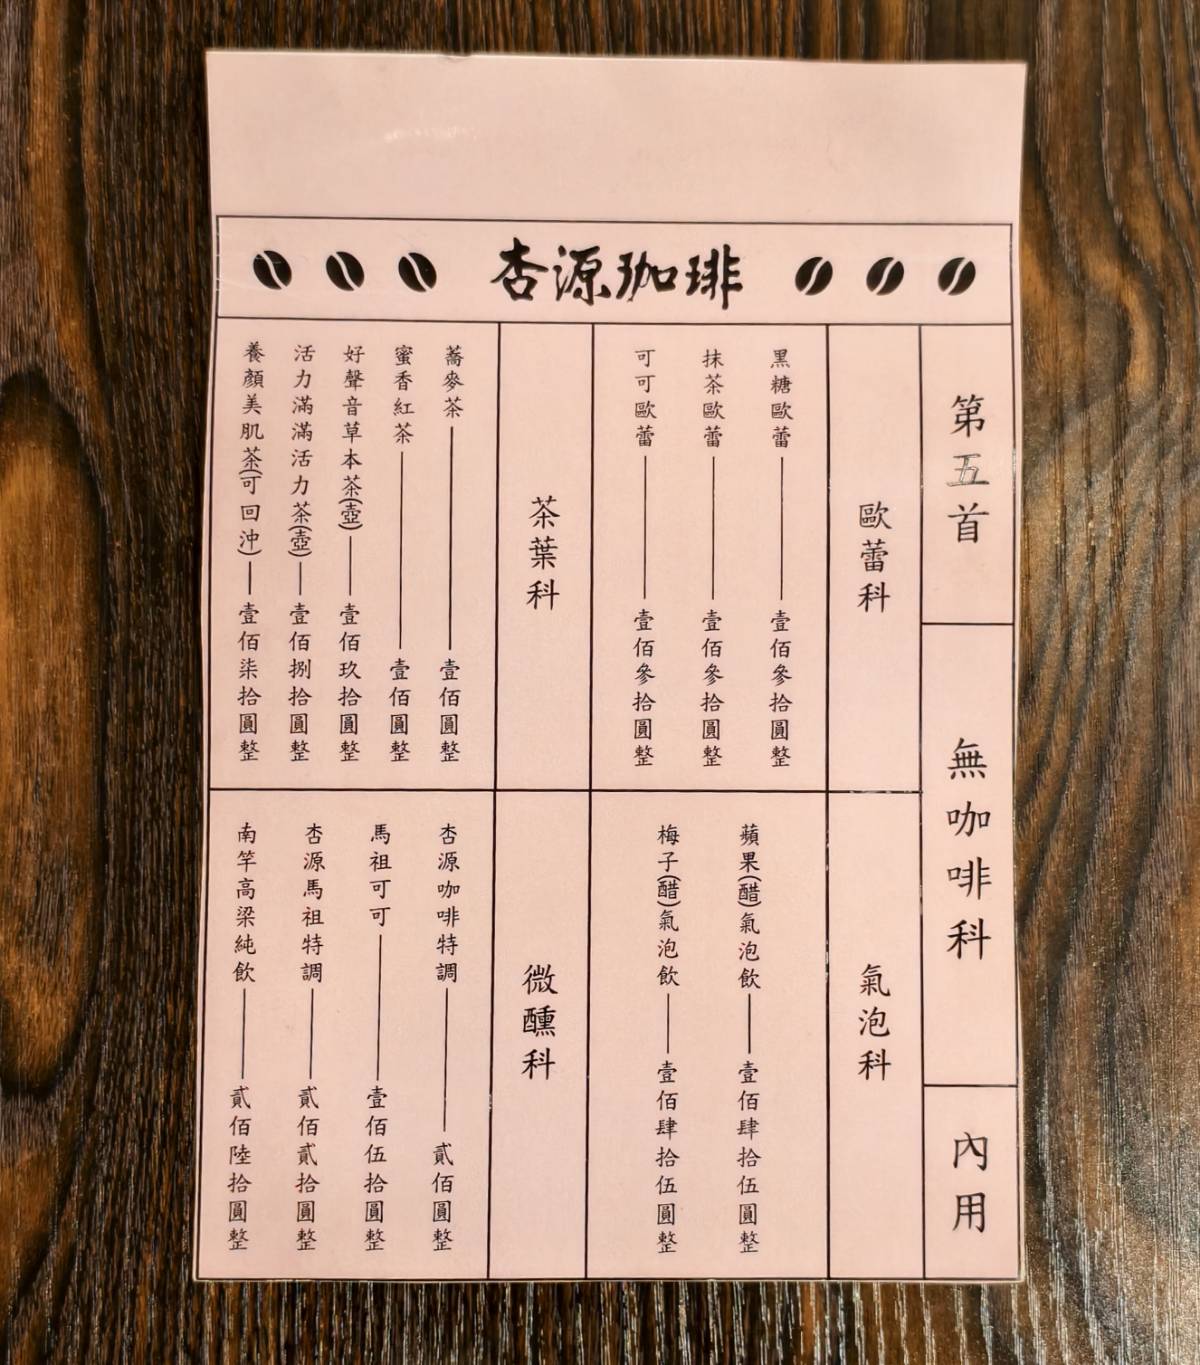 杏源珈琲
第五首
無咖啡科
內用
歐蕾科
黑糖歐蕾 壹佰參拾圓整
抹茶歐蕾 壹佰參拾圓整
可可歐蕾 壹佰參拾圓整
氣泡科
蘋果(醋)氣泡飲 壹佰肆拾伍圓整
梅子(醋)氣泡飲 壹佰肆拾伍圓整
茶葉科
蕎麥茶 壹佰圓整
蜜香紅茶 壹佰圓整
好聲音草本茶(壺) 壹佰玖拾圓整
活力滿滿活力茶(壺) 壹佰捌拾圓整
養顏美肌茶(可回沖) 壹佰柒拾圓整
微醺科
杏源咖啡特調 貳佰圓整
馬祖可可 壹佰伍拾圓整
杏源馬祖特調 貳佰貳拾圓整
南竿高梁純飲 貳佰陸拾圓整